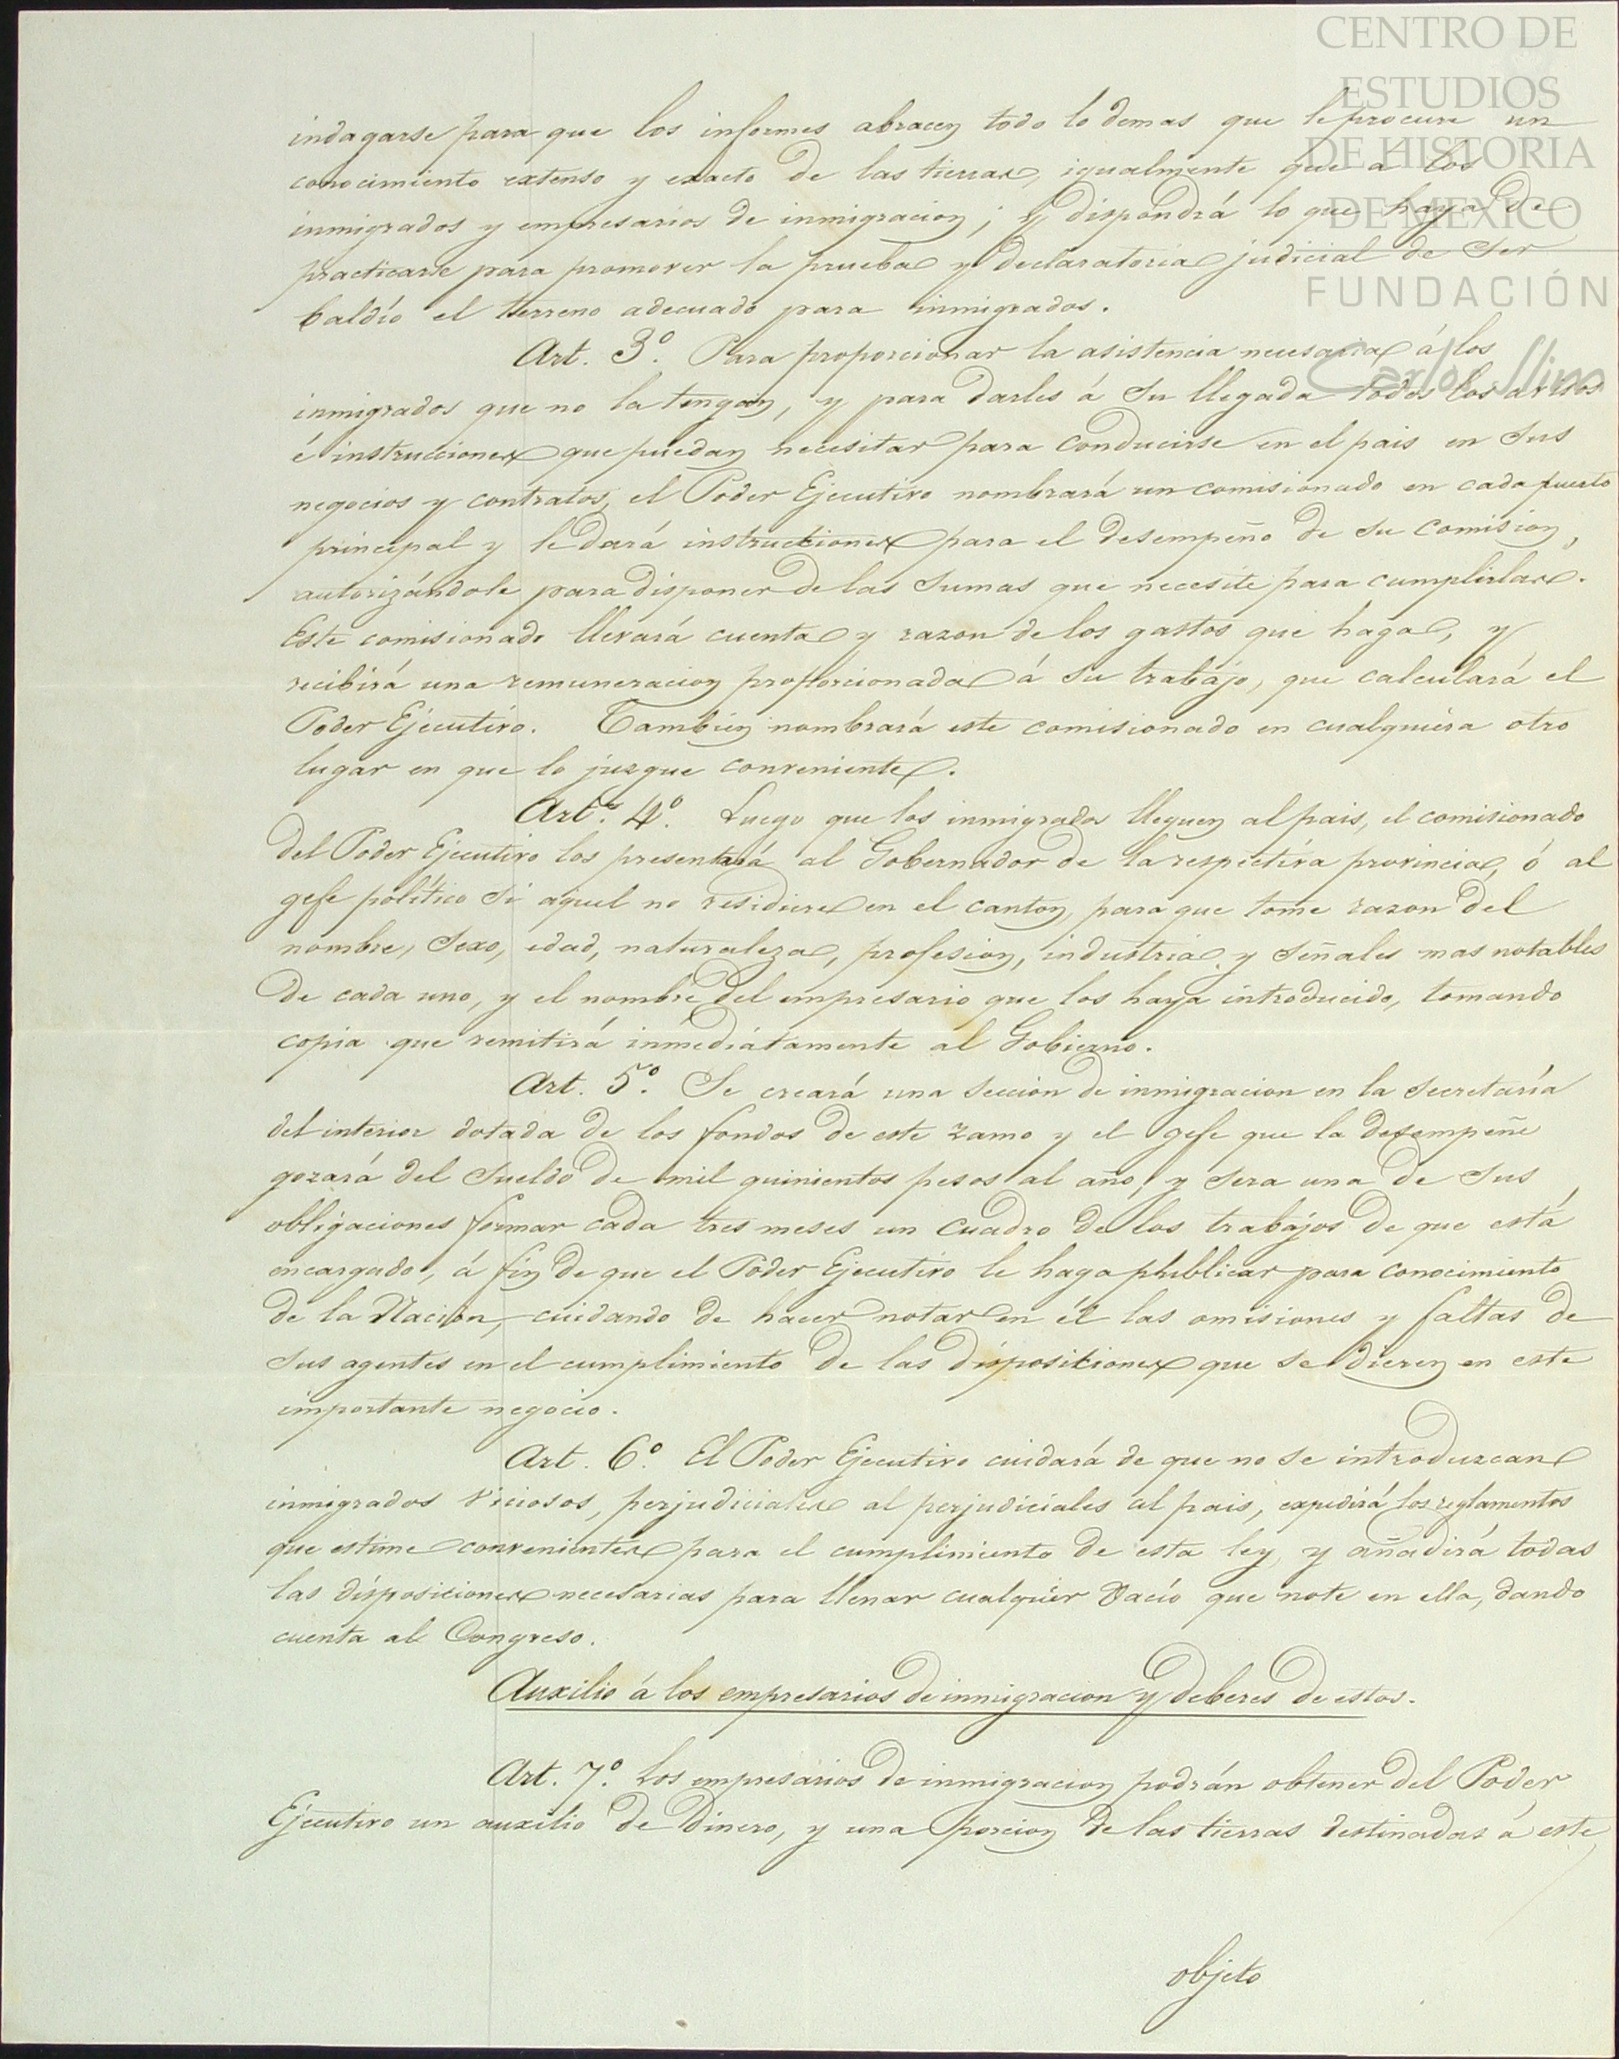 CENTRO DE
ESTUDIOS
DE HISTORIA
DE MEXICO
FUNDACIÓN
Carlos Slim
indagarse para que los informes abracen todo lo demas que le procure un
conocimiento extenso y exacto de las tierras, igualmente que á los
inmigrados y empresarios de inmigracion; y dispondrá lo que haya de
practicarse para promover la prueba y declaratoria judicial de ser
baldío el terreno adecuado para inmigrados.
Art. 3º. Para proporcionar la asistencia necesaria á los
inmigrados que no la tengan, y para darles á su llegada todos los avisos
é instrucciones que puedan necesitar para conducirse en el pais en sus
negocios y contratos, el Poder Ejecutivo nombrará un comisionado en cada puerto
principal y le dará instrucciones para el desempeño de su comision,
autorizándole para disponer de las sumas que necesite para cumplirlas.
Este comisionado llevará cuenta y razon de los gastos que haga, y
recibirá una remuneracion proporcionada á su trabajo, que calculará el
Poder Ejecutivo. Tambien nombrará este comisionado en cualquiera otro
lugar en que lo juzgue conveniente.
Art. 4º. Luego que los inmigrados lleguen al pais, el comisionado
del Poder Ejecutivo los presentará al Gobernador de la respectiva provincia, ó al
gefe político si aquel no residiere en el canton, para que tome razon del
nombre, sexo, edad, naturaleza, profesion, industria y señales mas notables
de cada uno, y el nombre del empresario que los haya introducido, tomando
copia que remitirá inmediátamente al Gobierno.
Art. 5º. Se creará una seccion de inmigracion en la secretaría
del interior dotada de los fondos de este ramo y el gefe que la desempeñe
gozará del sueldo de mil quinientos pesos al año, y sera una de sus
obligaciones formar cada tres meses un cuadro de los trabajos de que está
encargado, á fin de que el Poder Ejecutivo le haga publicar para conocimiento
de la Nacion, cuidando de hacer notar en él las omisiones y faltas de
sus agentes en el cumplimiento de las disposiciones que se dieren en este
importante negocio.
Art. 6º. El Poder Ejecutivo cuidará de que no se introduzcan
inmigrados viciosos, perjudiciales al perjudiciales al pais, expedirá los reglamentos
que estime convenientes para el cumplimiento de esta ley, y añadirá todas
las disposiciones necesarias para llenar cualquier vacío que note en ella, dando
cuenta al Congreso.
Auxilio á los empresarios de inmigracion y deberes de estos.
Art. 7º. Los empresarios de inmigracion podrán obtener del Poder
Ejecutivo un auxilio de dinero, y una porcion de las tierras destinadas á este
objeto